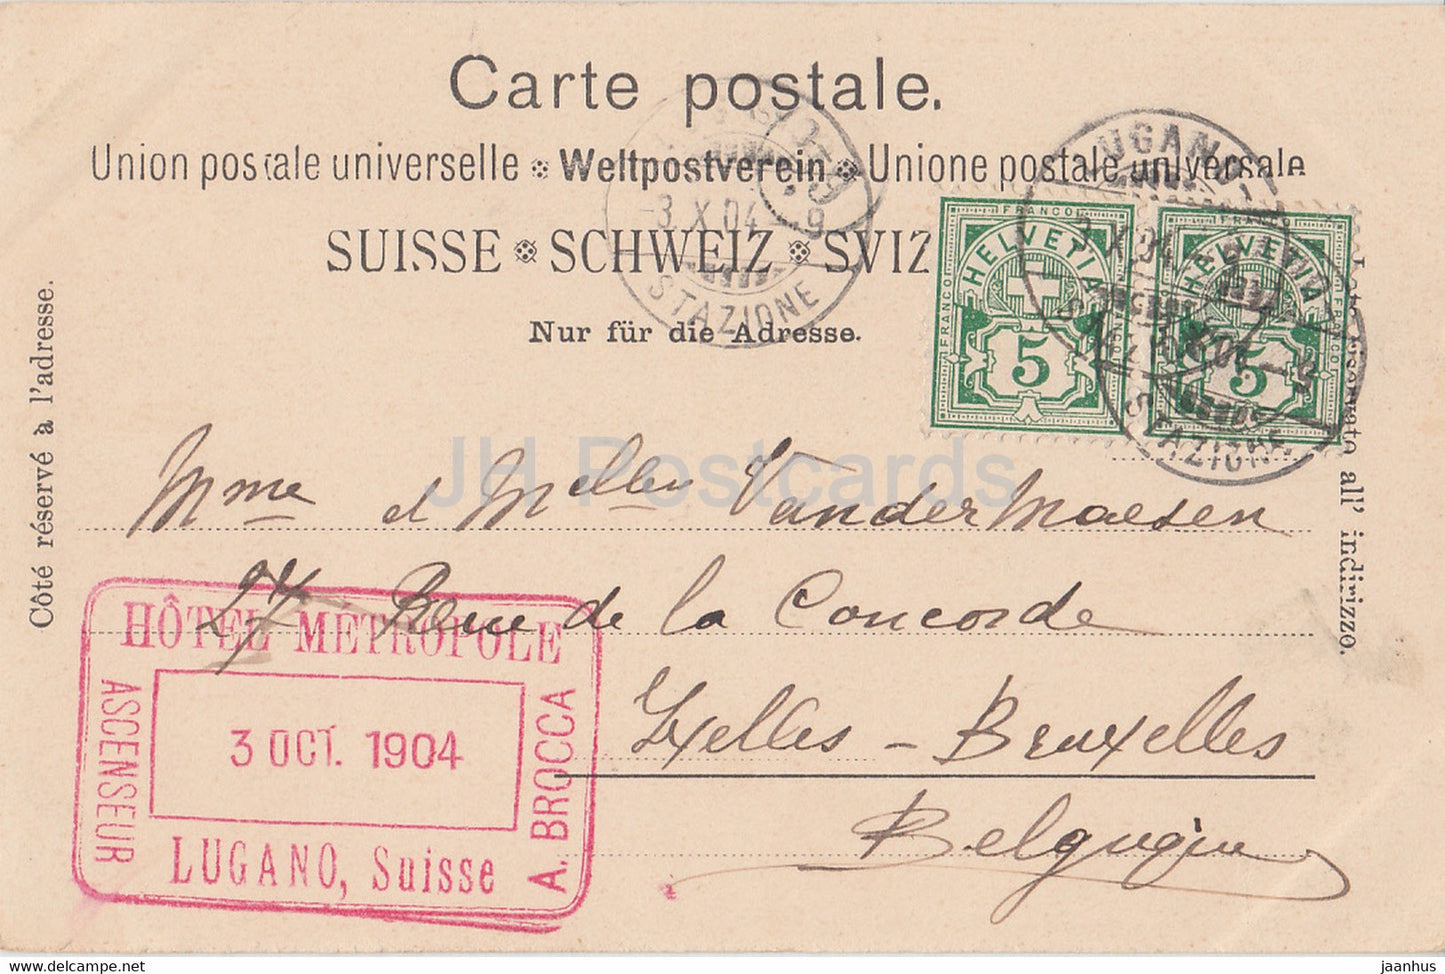 Carte postale.
Union postale universelle ※ Weltpostverein ※ Unione postale universale
SUISSE ※ SCHWEIZ ※ SVIZ
Nur für die Adresse.
Côté réservé à l'adresse.
all' indirizzo.
-3.X.04.-9
STAZIONE
LUGANO
X.04
STAZIONE
FRANCO
HELVETIA
5
FRANCO
HELVETIA
5
JH Postcards
Mme et Melles VanderMaesen
27 Rue de la Concorde
Ixelles - Bruxelles
Belgique
HÔTEL MÉTROPOLE
ASCENSEUR
3 OCT. 1904
A. BROCCA
LUGANO, Suisse
www.jaanhus.net
jaanhus.net